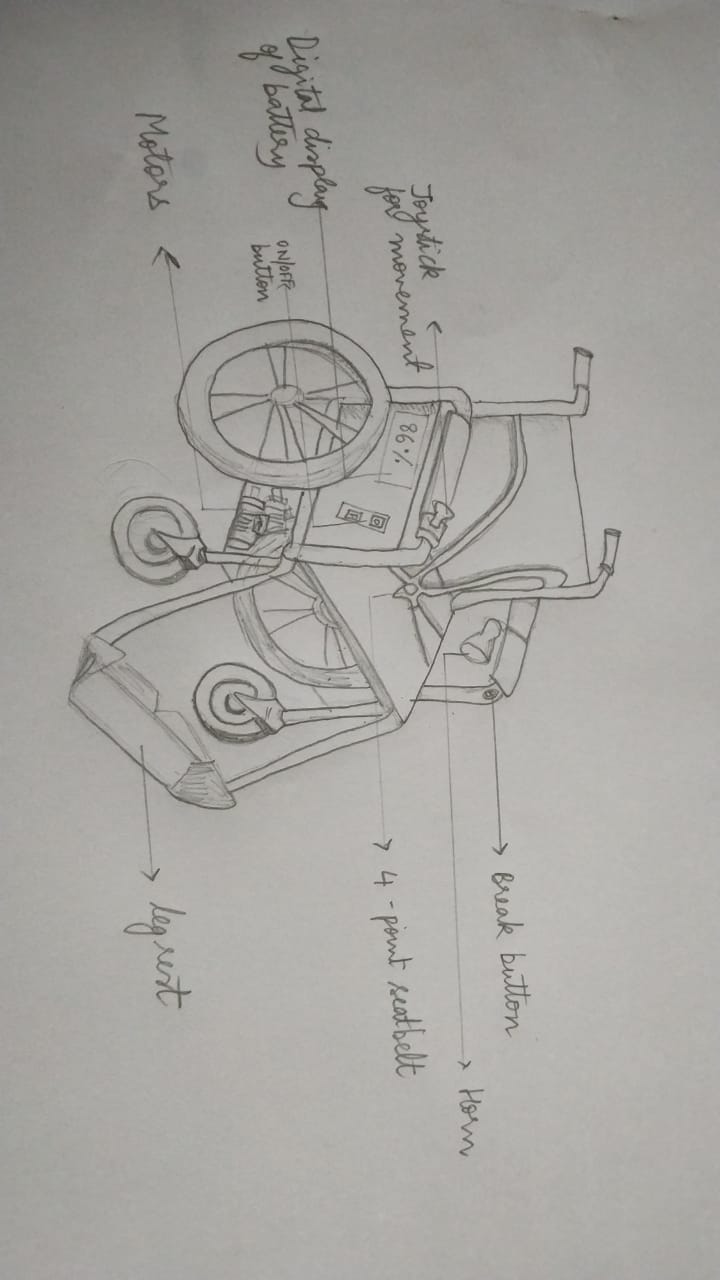 Break button
Horn
Joystick
for movement
86%
4-point seatbelt
Digital display
of battery
ON/OFF
button
Motors
leg rest